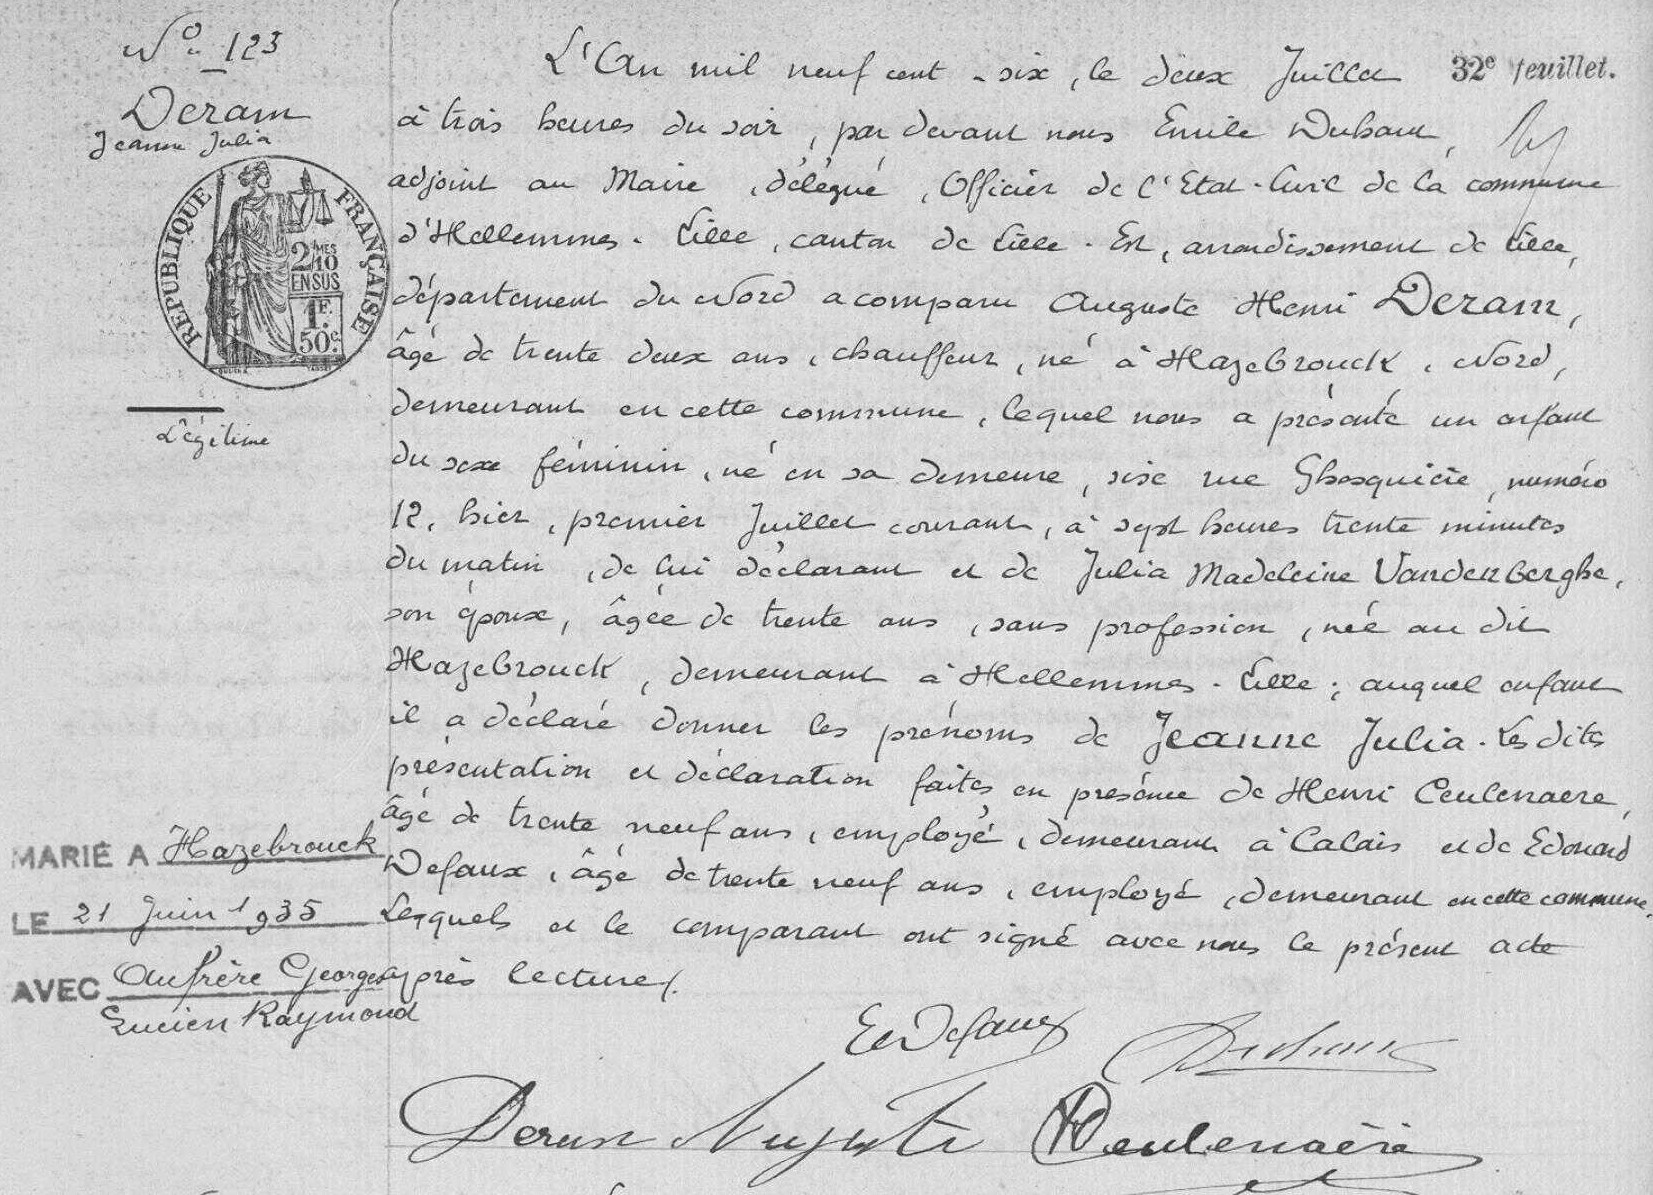 N° 123
Deram
Jeanne Julia
RÉPUBLIQUE FRANÇAISE
2 MES
10
EN SUS
1F.
50c.
Légitime
MARIÉ A Hazebrouck
LE 21 Juin 1935
AVEC Aufrère Georges
Lucien Raymond
32e feuillet.
L'An mil neuf cent - six, le deux Juillet
à trois heures du soir, par devant nous Emile Dubant,
adjoint au Maire, délégué, Officier de l'Etat-Civil de la commune
d'Hellemmes-Lille, canton de Lille-Est, arrondissement de Lille,
département du Nord a comparu Auguste Henri Deram,
âgé de trente deux ans, chauffeur, né à Hazebrouck, Nord,
demeurant en cette commune, lequel nous a présenté un enfant
du sexe féminin, né en sa demeure, sise rue Ghesquière, numéro
12, hier, premier Juillet courant, à sept heures trente minutes
du matin, de lui déclarant et de Julia Madeleine Vandenberghe,
son épouse, âgée de trente ans, sans profession, née au dit
Hazebrouck, demeurant à Hellemmes-Lille; auquel enfant
il a déclaré donner les prénoms de Jeanne Julia. Les dites
présentation et déclaration faites en présence de Henri Ceulenaere,
âgé de trente neuf ans, employé, demeurant à Calais et de Edouard
Defaux, âgé de trente neuf ans, employé, demeurant en cette commune.
Lesquels et le comparant ont signé avec nous le présent acte
après lecture.
Ed Defaux
Deram Auguste
Ceulenaere